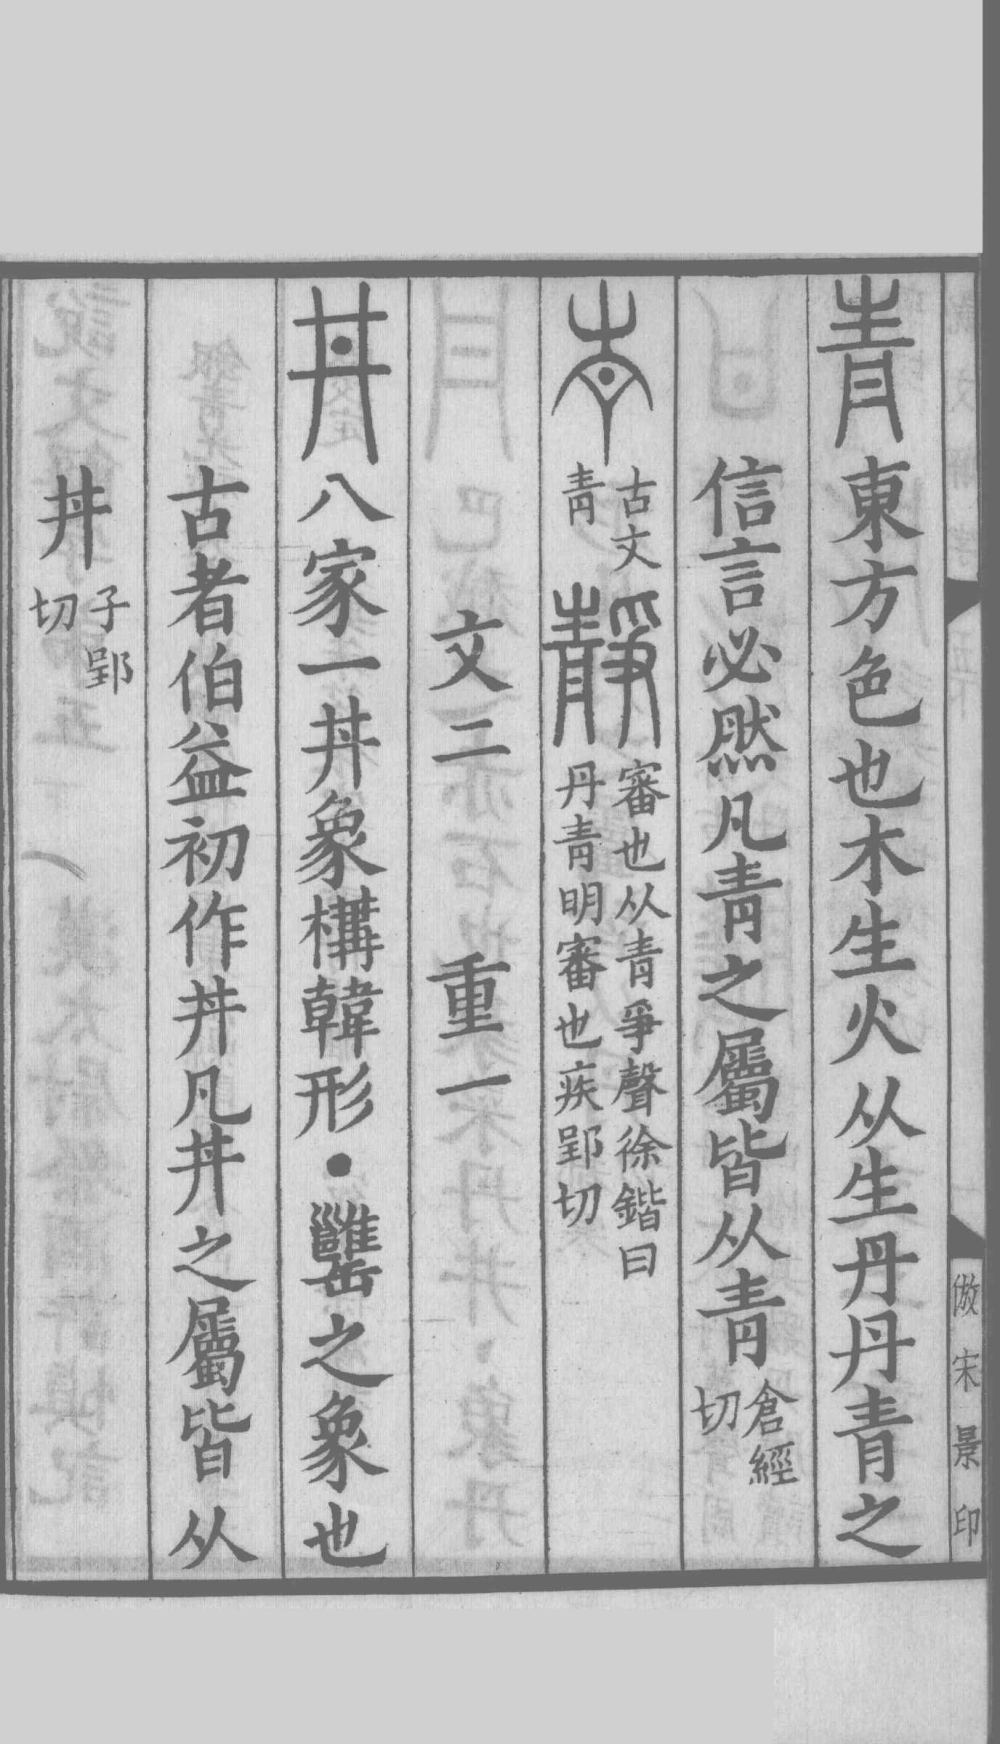 青東方色也木生火从生丹丹青之
信言必然凡青之屬皆从青倉經切
古文青靜審也从青爭聲徐鍇曰丹青明審也疾郢切
文二重一
丼八家一丼象構韓形・𦉥之象也
古者伯益初作丼凡丼之屬皆从
丼子郢切
倣宋景印